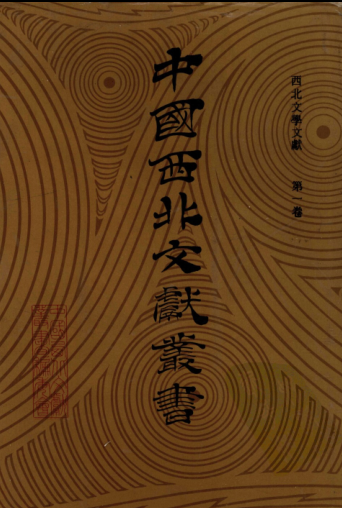 西北文學文獻 第一卷
中國西北文獻叢書